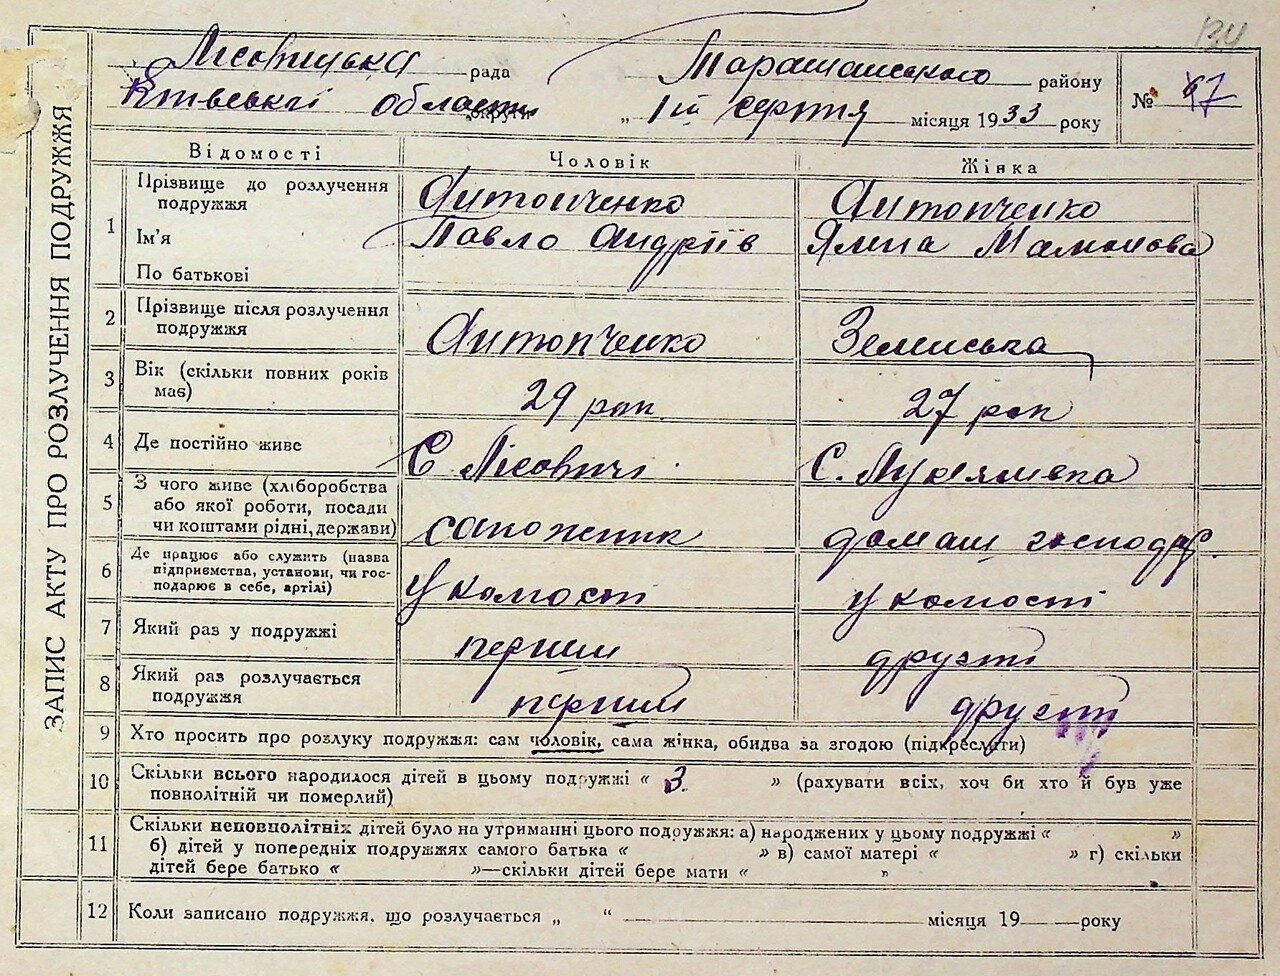 124
Лісовицька рада Таращанського району № 67
Київської області округи „ 1й серпня місяця 1933 року
ЗАПИС АКТУ ПРО РОЗЛУЧЕННЯ ПОДРУЖЖЯ
Відомості Чоловік Жінка
1 Прізвище до розлучення подружжя Антопченко Антопченко
Ім'я Павло Андріїв Ялина Мамонова
По батькові
2 Прізвище після розлучення подружжя Антопченко Зелинська
3 Вік (скільки повних років має) 29 рок 27 рок
4 Де постійно живе С Лісовичі С. Лукянівка
5 З чого живе (хліборобства або якої роботи, посади чи коштами рідні, держави) сапожник домаш господар
6 Де працює або служить (назва підприємства, установи, чи господарює в себе, артілі) У колгості у колгості
7 Який раз у подружжі перший другий
8 Який раз розлучається подружжя перший другий
9 Хто просить про розлуку подружжя: сам чоловік, сама жінка, обидва за згодою (підкреслити)
10 Скільки всього народилося дітей в цьому подружжі „ 3 " (рахувати всіх, хоч би хто й був уже
повнолітній чи померлий)
11 Скільки неповнолітніх дітей було на утриманні цього подружжя: а) народжених у цьому подружжі „ "
б) дітей у попередніх подружжях самого батька „ " в) самої матері „ " г) скільки
дітей бере батько „ "—скільки дітей бере мати „ "
12 Коли записано подружжя, що розлучається „ " місяця 19 року